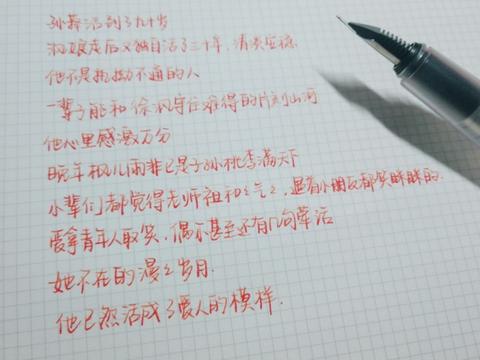 孙莽活到了九十岁
淑娘走后又独自活了三十年，清淡安稳
他不是执拗不通的人
一辈子能和徐淑守住难得的片刻山河
他心里感激万分
晚年枫儿雨非已是子孙桃李满天下
小辈们都觉得老师祖和和气气，遇着小朋友都笑眯眯的.
爱拿青年人取笑，偶尔甚至还有几句荤话
她不在的漫漫岁月.
他已然活成了爱人的模样.